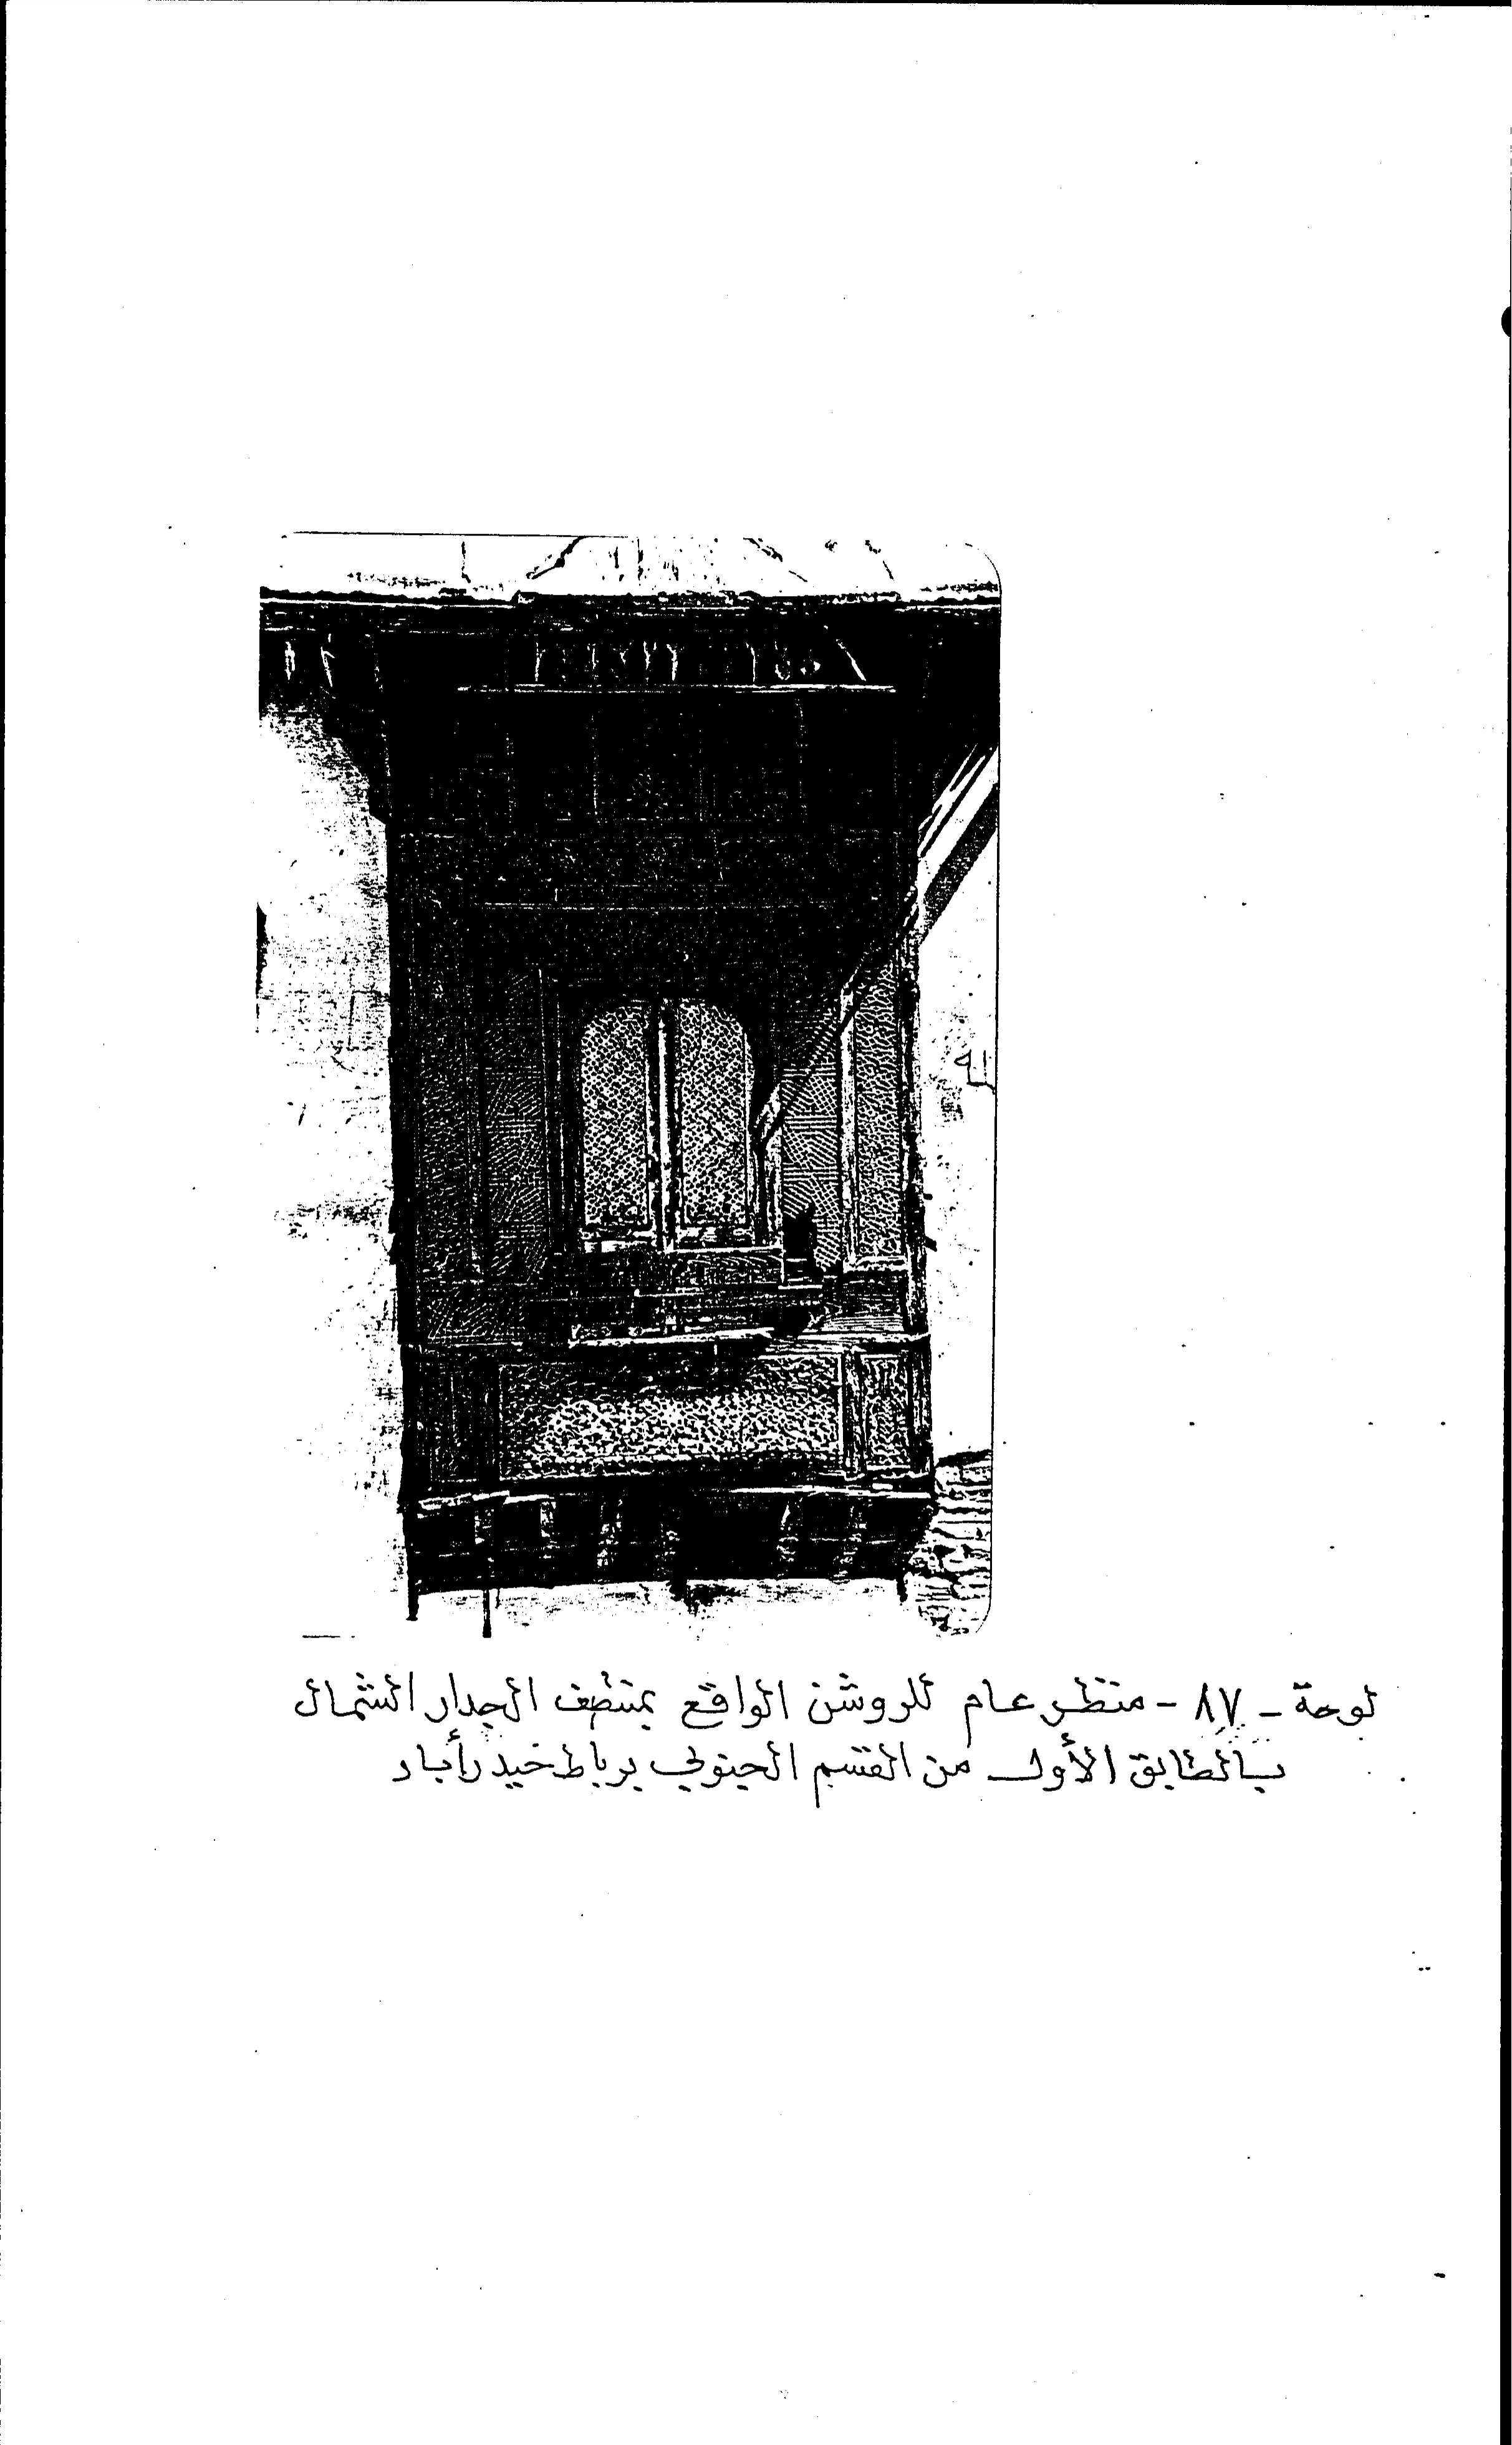 لوحة - ٨٧ - منظر عام للروشن الواقع بمنتصف الجدار الشمال
بالطابق الأول من القسم الجنوبي برباط حيدرأباد